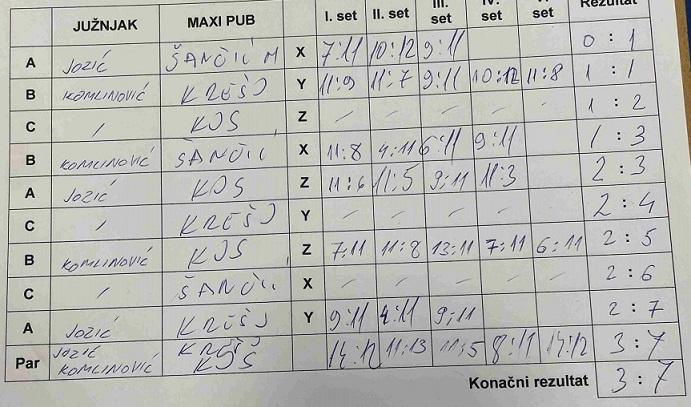 JUŽNJAK MAXI PUB I. set II. set III. set IV. set V. set Rezultat
A JOZIĆ ŠANČIĆ M X 7:11 10:12 9:11 0 : 1
B KOMLINOVIĆ KREŠO Y 11:9 11:7 9:11 10:12 11:8 1 : 1
C / KOS Z / / / / / 1 : 2
B KOMLINOVIĆ ŠANČIĆ X 11:8 4:11 6:11 9:11 1 : 3
A JOZIĆ KOS Z 11:6 11:5 9:11 11:3 2 : 3
C / KREŠO Y / / / / / 2 : 4
B KOMLINOVIĆ KOS Z 7:11 11:8 13:11 7:11 6:11 2 : 5
C / ŠANČIĆ X / / / / / 2 : 6
A JOZIĆ KREŠO Y 9:11 4:11 9:11 2 : 7
Par JOZIĆ KOMLINOVIĆ KREŠO KOS 14:12 11:13 11:5 8:11 14:12 3 : 7
Konačni rezultat 3 : 7